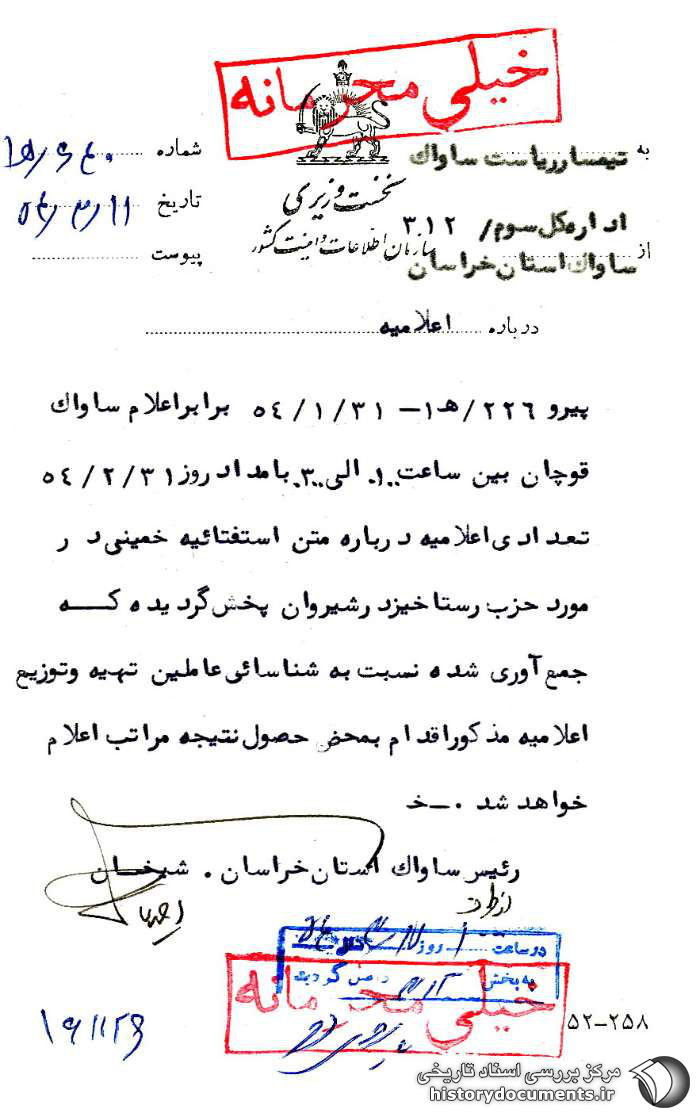 خیلی محرمانه
به تیمسار ریاست ساواک
شماره
نخست وزیری
تاریخ
اداره کل سوم / ۳۱۲
سازمان اطلاعات و امنیت کشور
از ساواک استان خراسان
پیوست
درباره اعلامیه
پیرو ۲۲۶/هـ۱ – ۵۴/۱/۳۱ برابر اعلام ساواک
قوچان بین ساعت ۰۱۰۰ الی ۰۳۰۰ بامداد روز ۵۴/۲/۳۱
تعدادی اعلامیه درباره متن استفتائیه خمینی در
مورد حزب رستاخیز در شیروان پخش گردیده که
جمع آوری شده نسبت به شناسائی عاملین تهیه و توزیع
اعلامیه مذکور اقدام بمحض حصول نتیجه مراتب اعلام
خواهد شد . – خ
رئیس ساواک استان خراسان . شیخان
از طرف
در ساعت روز
به بخش واصل گردید
خیلی محرمانه
۵۲–۲۵۸
مرکز بررسی اسناد تاریخی
historydocuments.ir